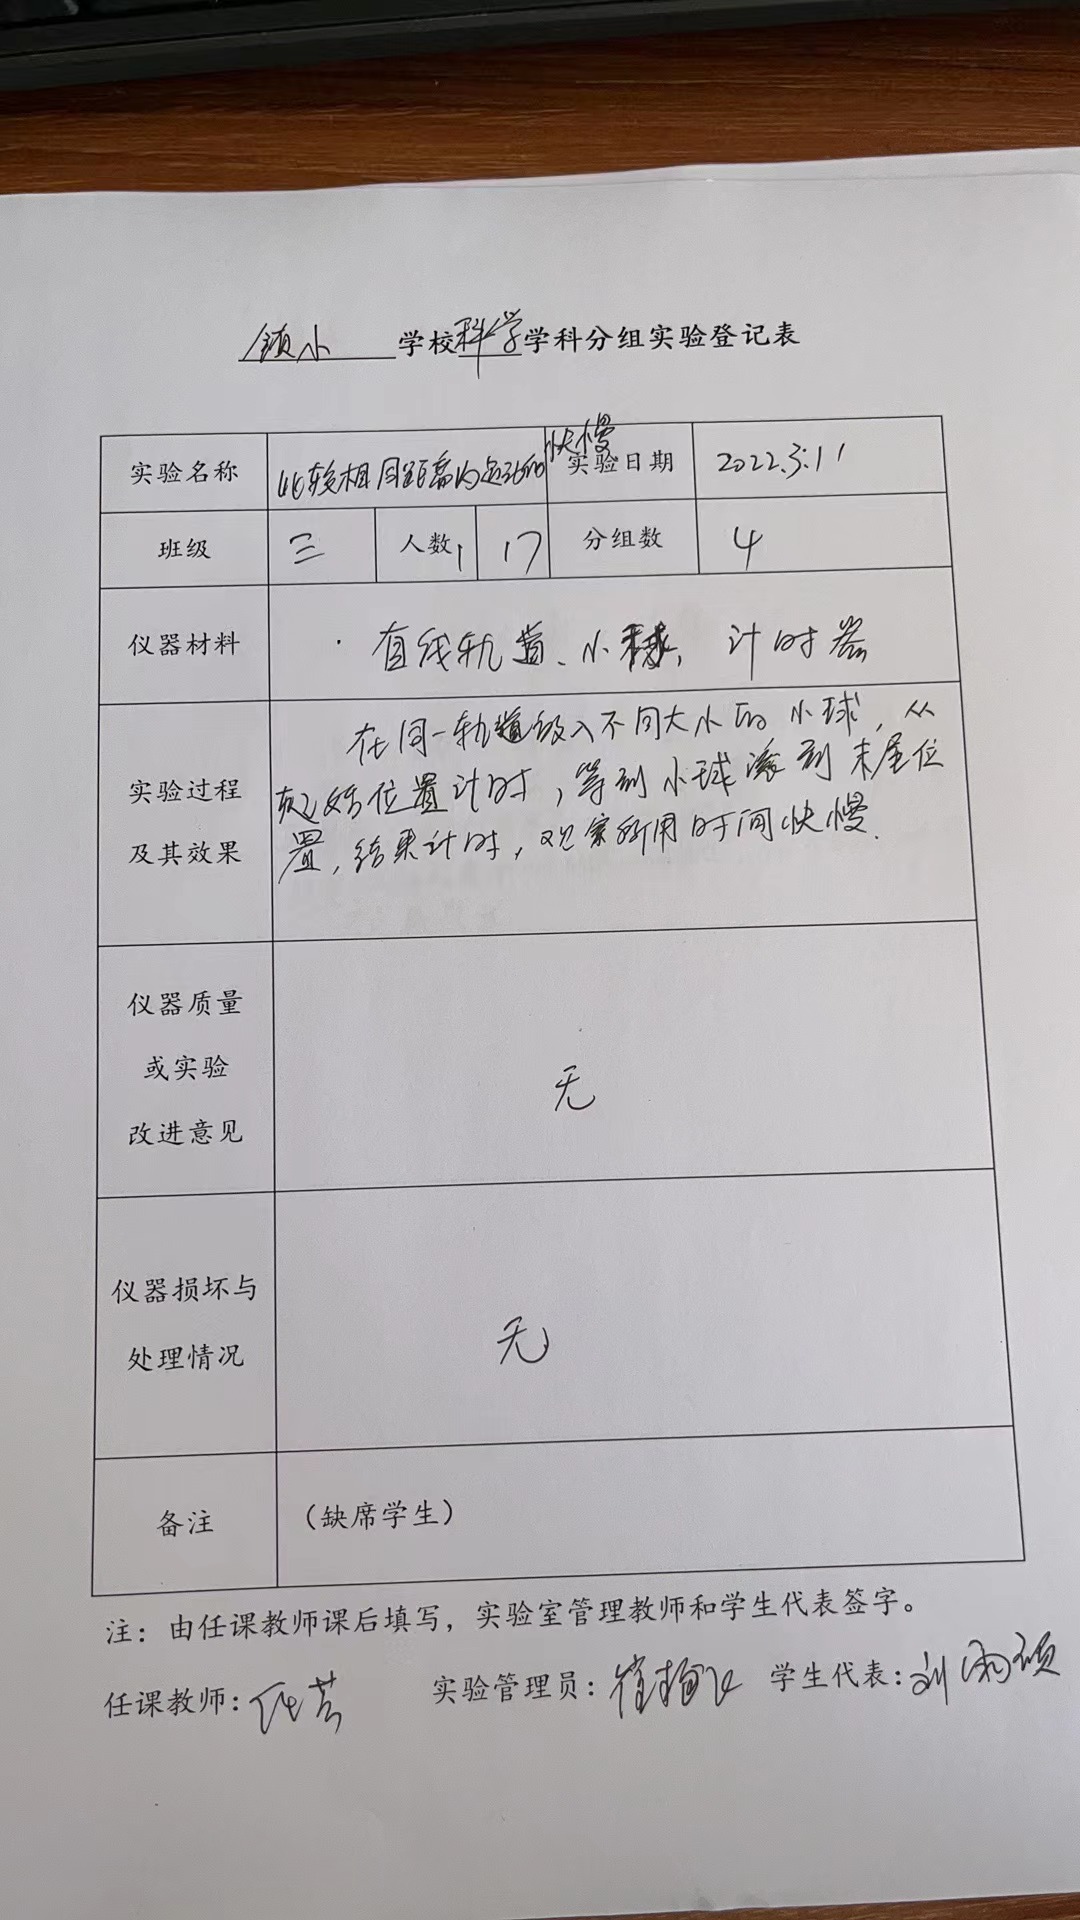 镇小 学校科学学科分组实验登记表
实验名称 比较相同距离的运动的快慢 实验日期 2022.3.11
班级 三 人数 17 分组数 4
仪器材料 直线轨道、小球、计时器
实验过程
及其效果
在同一轨道放入不同大小的小球，从
起始位置计时，等到小球滚到末尾位
置，结束计时，观察所用时间快慢.
仪器质量
或实验
改进意见
无
仪器损坏与
处理情况
无
备注 （缺席学生）
注：由任课教师课后填写，实验室管理教师和学生代表签字。
任课教师： 实验管理员： 学生代表：刘